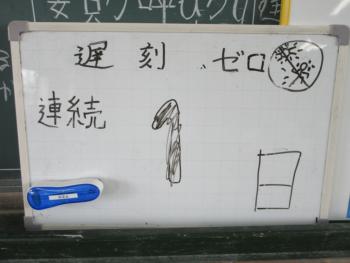 遅刻ゼロ
連続
1日